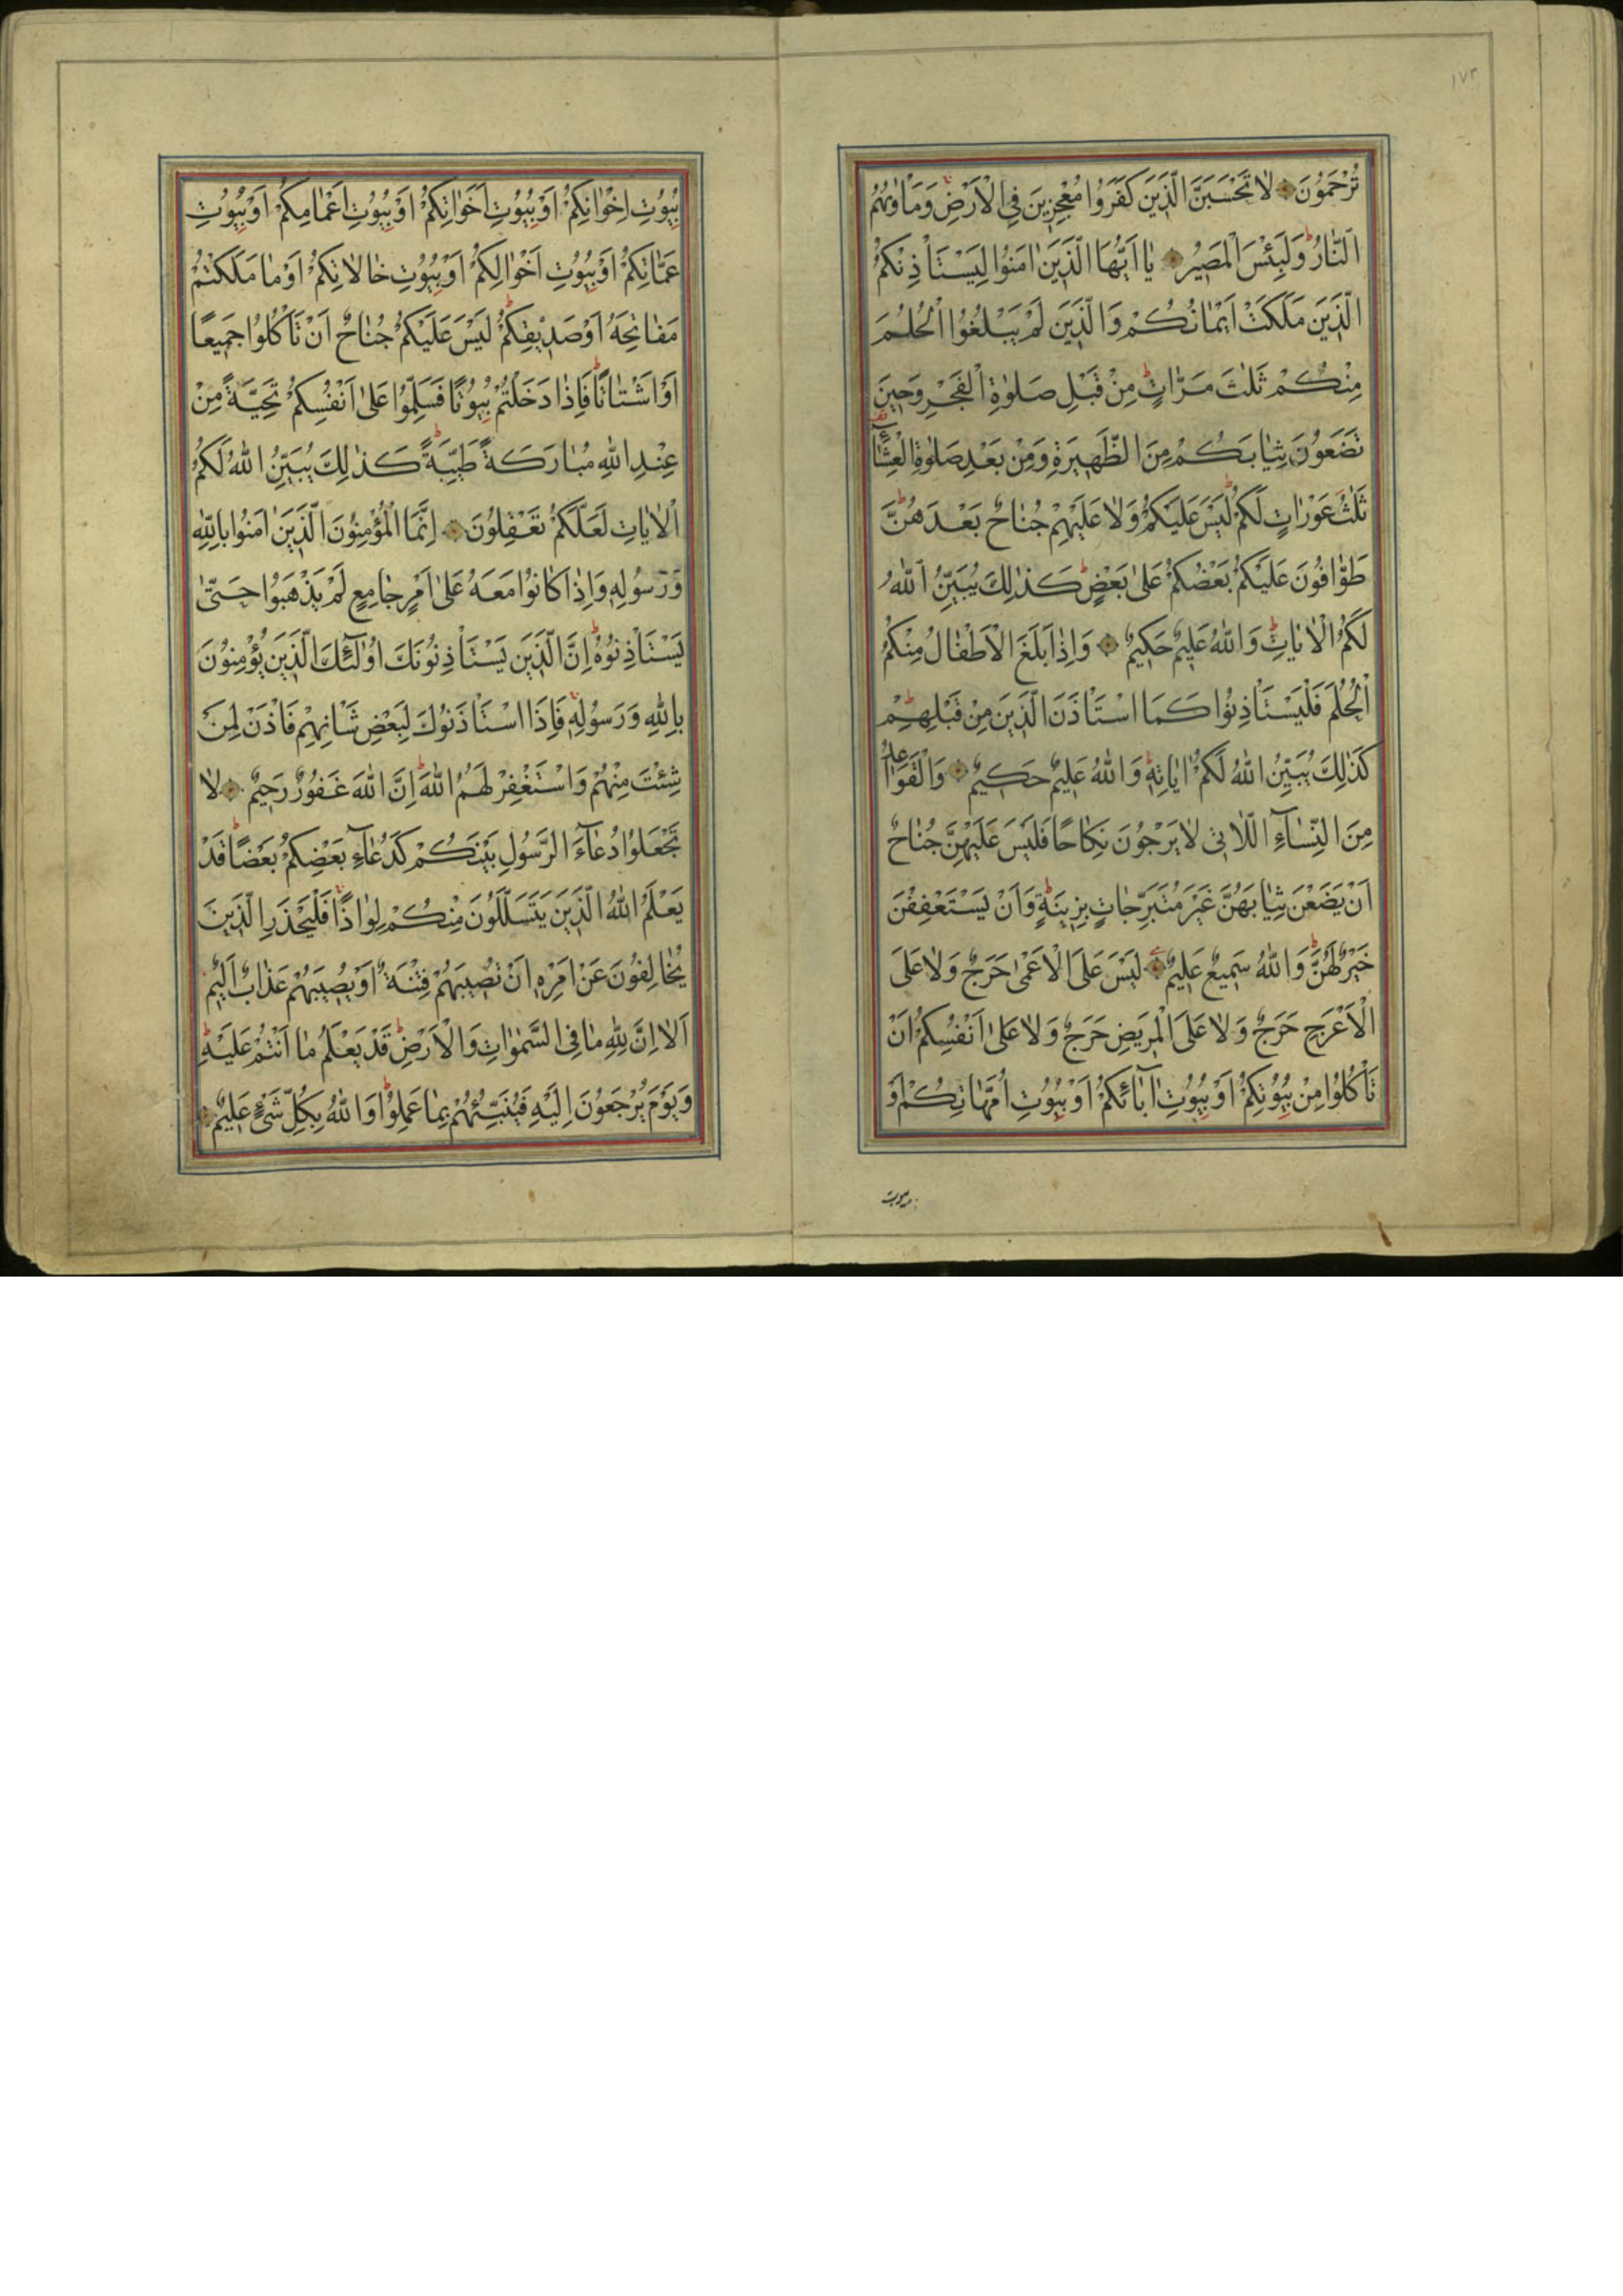 ١٧٣
تُرْحَمُونَ لَا تَحْسَبَنَّ الَّذِينَ كَفَرُوا مُعْجِزِينَ فِي الْاَرْضِ وَمَاْوٰيهُمُ
النَّارُ وَلَبِئْسَ الْمَصِيرُ يَا اَيُّهَا الَّذِينَ اٰمَنُوا لِيَسْتَاْذِنْكُمُ
الَّذِينَ مَلَكَتْ اَيْمَانُكُمْ وَالَّذِينَ لَمْ يَبْلُغُوا الْحُلُمَ
مِنْكُمْ ثَلٰثَ مَرَّاتٍ مِنْ قَبْلِ صَلٰوةِ الْفَجْرِ وَحِينَ
تَضَعُونَ ثِيَابَكُمْ مِنَ الظَّهِيرَةِ وَمِنْ بَعْدِ صَلٰوةِ الْعِشَآءِ
ثَلٰثُ عَوْرَاتٍ لَكُمْ لَيْسَ عَلَيْكُمْ وَلَا عَلَيْهِمْ جُنَاحٌ بَعْدَهُنَّ
طَوَّافُونَ عَلَيْكُمْ بَعْضُكُمْ عَلٰى بَعْضٍ كَذٰلِكَ يُبَيِّنُ اللّٰهُ
لَكُمُ الْاٰيَاتِ وَاللّٰهُ عَلِيمٌ حَكِيمٌ وَاِذَا بَلَغَ الْاَطْفَالُ مِنْكُمُ
الْحُلُمَ فَلْيَسْتَاْذِنُوا كَمَا اسْتَاْذَنَ الَّذِينَ مِنْ قَبْلِهِمْ
كَذٰلِكَ يُبَيِّنُ اللّٰهُ لَكُمْ اٰيَاتِهِ وَاللّٰهُ عَلِيمٌ حَكِيمٌ وَالْقَوَاعِدُ
مِنَ النِّسَآءِ اللَّاتِي لَا يَرْجُونَ نِكَاحًا فَلَيْسَ عَلَيْهِنَّ جُنَاحٌ
اَنْ يَضَعْنَ ثِيَابَهُنَّ غَيْرَ مُتَبَرِّجَاتٍ بِزِينَةٍ وَاَنْ يَسْتَعْفِفْنَ
خَيْرٌ لَهُنَّ وَاللّٰهُ سَمِيعٌ عَلِيمٌ لَيْسَ عَلَى الْاَعْمٰى حَرَجٌ وَلَا عَلَى
الْاَعْرَجِ حَرَجٌ وَلَا عَلَى الْمَرِيضِ حَرَجٌ وَلَا عَلٰى اَنْفُسِكُمْ اَنْ
تَاْكُلُوا مِنْ بُيُوتِكُمْ اَوْ بُيُوتِ اٰبَائِكُمْ اَوْ بُيُوتِ اُمَّهَاتِكُمْ اَوْ
بُيُوتِ اِخْوَانِكُمْ اَوْ بُيُوتِ اَخَوَاتِكُمْ اَوْ بُيُوتِ اَعْمَامِكُمْ اَوْ بُيُوتِ
عَمَّاتِكُمْ اَوْ بُيُوتِ اَخْوَالِكُمْ اَوْ بُيُوتِ خَالَاتِكُمْ اَوْ مَا مَلَكْتُمْ
مَفَاتِحَهُ اَوْ صَدِيقِكُمْ لَيْسَ عَلَيْكُمْ جُنَاحٌ اَنْ تَاْكُلُوا جَمِيعًا
اَوْ اَشْتَاتًا فَاِذَا دَخَلْتُمْ بُيُوتًا فَسَلِّمُوا عَلٰى اَنْفُسِكُمْ تَحِيَّةً مِنْ
عِنْدِ اللّٰهِ مُبَارَكَةً طَيِّبَةً كَذٰلِكَ يُبَيِّنُ اللّٰهُ لَكُمُ
الْاٰيَاتِ لَعَلَّكُمْ تَعْقِلُونَ اِنَّمَا الْمُؤْمِنُونَ الَّذِينَ اٰمَنُوا بِاللّٰهِ
وَرَسُولِهِ وَاِذَا كَانُوا مَعَهُ عَلٰى اَمْرٍ جَامِعٍ لَمْ يَذْهَبُوا حَتّٰى
يَسْتَاْذِنُوهُ اِنَّ الَّذِينَ يَسْتَاْذِنُونَكَ اُولٰٓئِكَ الَّذِينَ يُؤْمِنُونَ
بِاللّٰهِ وَرَسُولِهِ فَاِذَا اسْتَاْذَنُوكَ لِبَعْضِ شَاْنِهِمْ فَاْذَنْ لِمَنْ
شِئْتَ مِنْهُمْ وَاسْتَغْفِرْ لَهُمُ اللّٰهَ اِنَّ اللّٰهَ غَفُورٌ رَحِيمٌ لَا
تَجْعَلُوا دُعَآءَ الرَّسُولِ بَيْنَكُمْ كَدُعَآءِ بَعْضِكُمْ بَعْضًا قَدْ
يَعْلَمُ اللّٰهُ الَّذِينَ يَتَسَلَّلُونَ مِنْكُمْ لِوَاذًا فَلْيَحْذَرِ الَّذِينَ
يُخَالِفُونَ عَنْ اَمْرِهِ اَنْ تُصِيبَهُمْ فِتْنَةٌ اَوْ يُصِيبَهُمْ عَذَابٌ اَلِيمٌ
اَلَا اِنَّ لِلّٰهِ مَا فِي السَّمٰوَاتِ وَالْاَرْضِ قَدْ يَعْلَمُ مَا اَنْتُمْ عَلَيْهِ
وَيَوْمَ يُرْجَعُونَ اِلَيْهِ فَيُنَبِّئُهُمْ بِمَا عَمِلُوا وَاللّٰهُ بِكُلِّ شَيْءٍ عَلِيمٌ